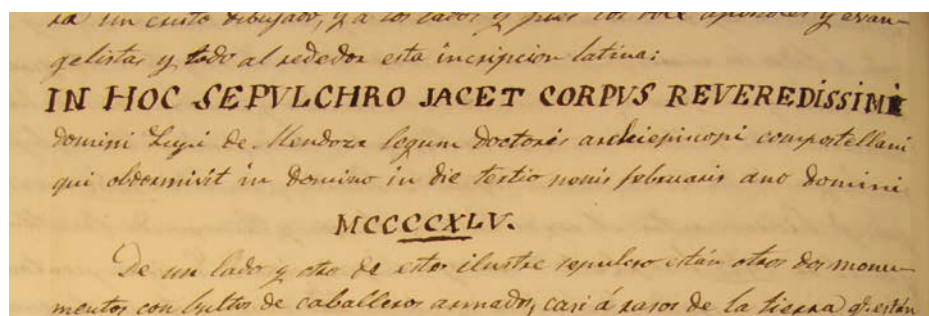 ra un cristo dibujado, y a los lados y pies los doce apostoles y evan-
gelistas y todo al rededor esta incripcion latina:
IN HOC SEPVLCHRO JACET CORPVS REVEREDISSIMI
domini Lupi de Mendoza legum doctoris archiepiscopi compostellani
qui obdermivit in domino in die tertio nonis februariis ano domini
MCCCCXLV.
De un lado y otro de este ilustre sepulcro están otros dos monu-
mentos con bultos de caballeros armados, casi á rasos de la tierra qe. están